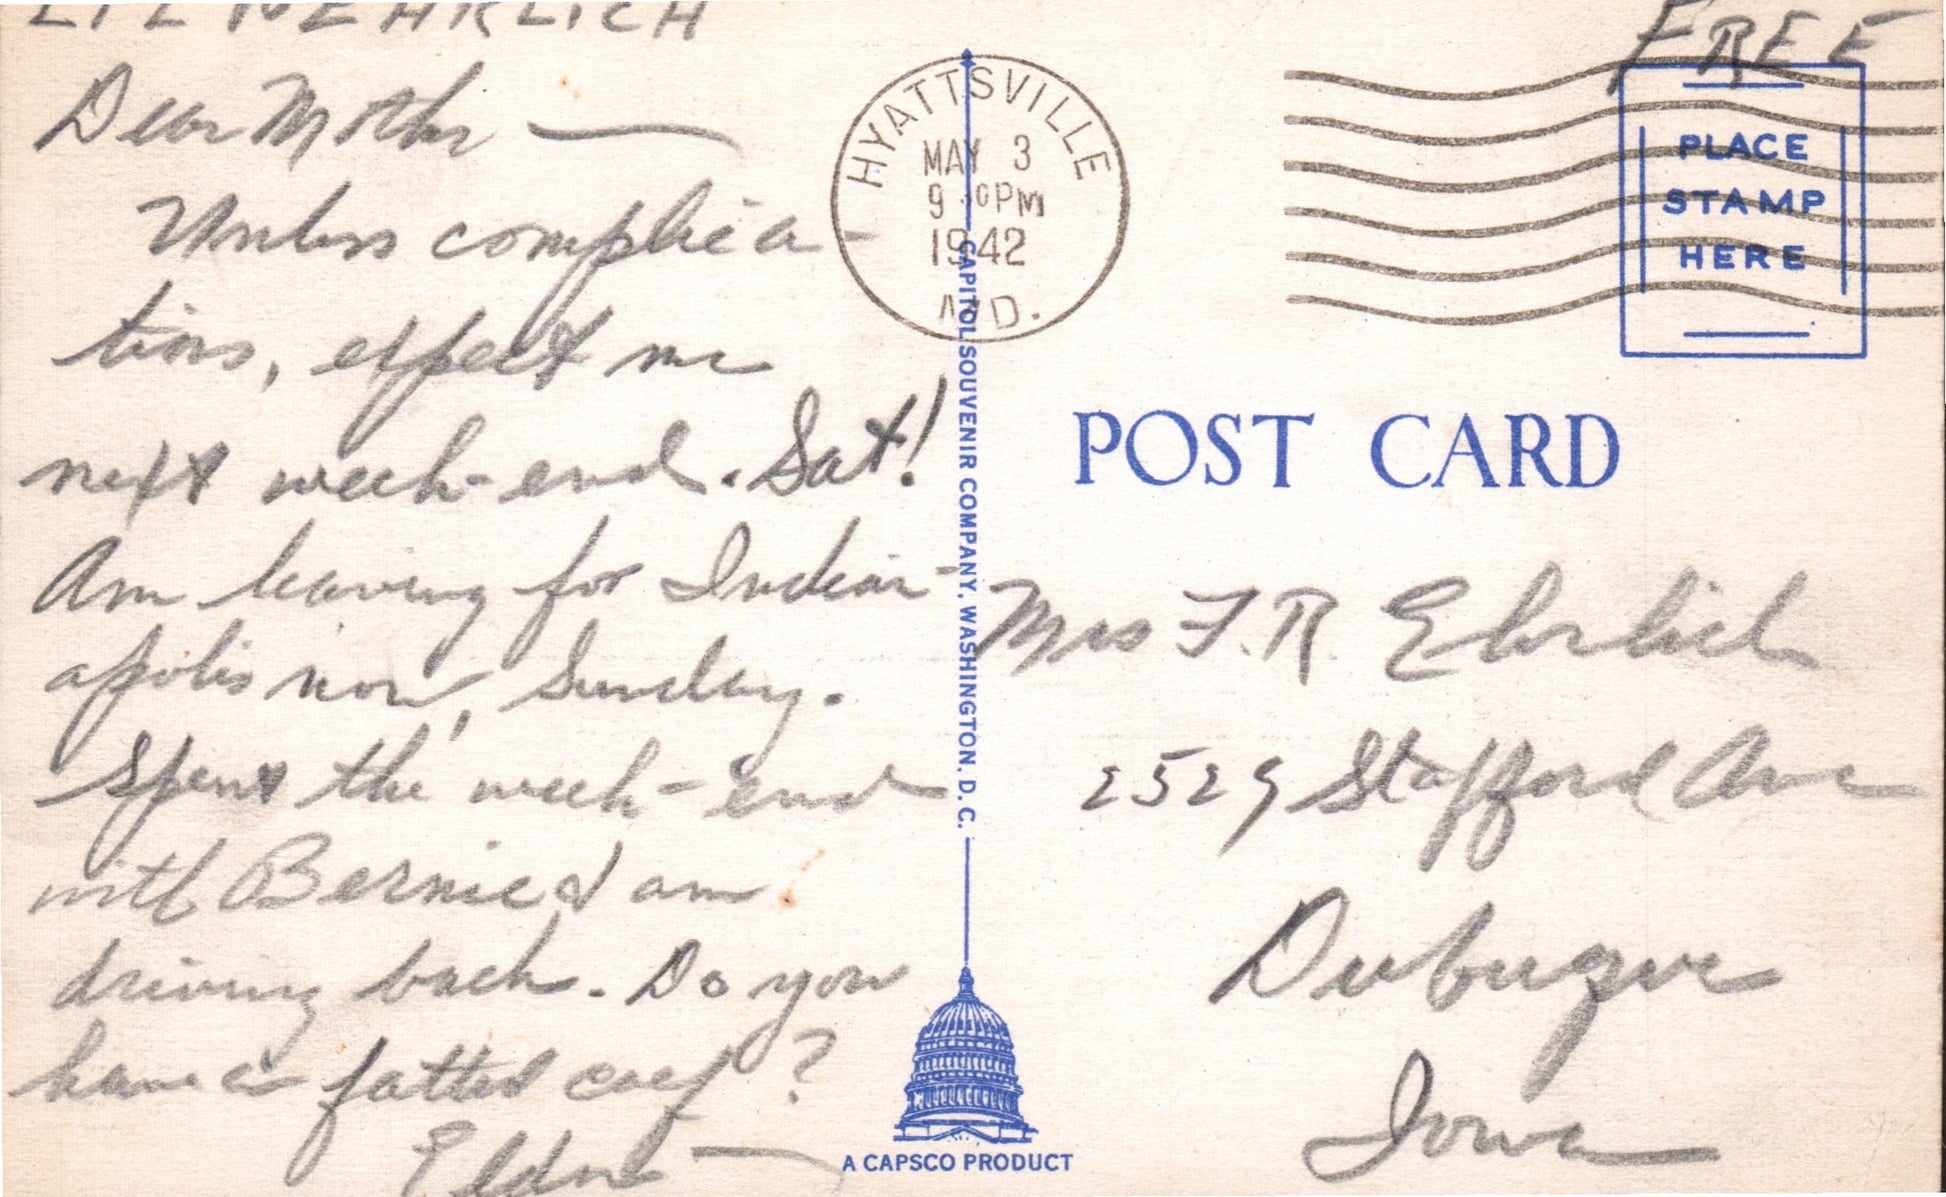 EHRLICH
FREE
Dear Mother —
Unless complica-
tions, expect me
next week-end. Sat!
Am leaving for Indian-
apolis now, Sunday.
Spent the week-end
with Bernie & am
driving back. Do you
have a fatted caef?
Eldon
HYATTSVILLE
MAY 3
9 PM
1942
MD.
PLACE
STAMP
HERE
CAPITOL SOUVENIR COMPANY, WASHINGTON, D.C.
POST CARD
Mrs F.R. Ehrlich
2529 Stafford Ave
Dubuque
Iowa
A CAPSCO PRODUCT